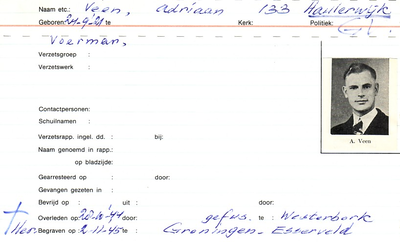 Naam etc.: Veen, Adriaan 133 Haulerwijk
Geboren: 24-9-21 te Kerk: Politiek:
Voerman,
Verzetsgroep :
Verzetswerk :
Contactpersonen:
Schuilnamen :
Verzetsrapp. ingel. dd. : bij:
Naam genoemd in rapp.:
op bladzijde:
Gearresteerd op : door:
Gevangen gezeten in :
Bevrijd op : uit : door:
Overleden op: -44 door: gefus. te : Westerbork
Her. Begraven op : 2-11-45 te : Groningen - Esserveld
A. Veen